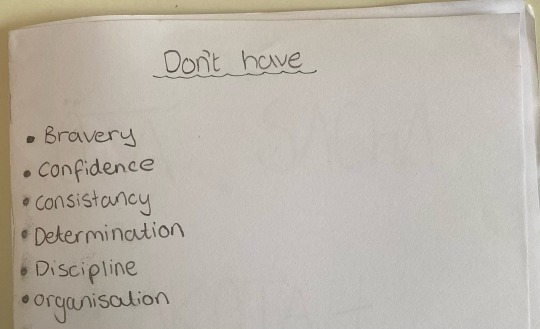 Don't have
• Bravery
• Confidence
• Consistancy
• Determination
• Discipline
• Organisation